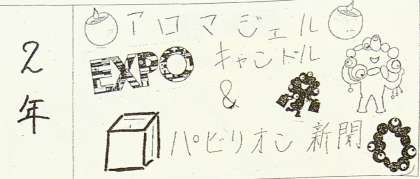 2年
アロマジェル
EXPO キャンドル
&
パビリオン新聞